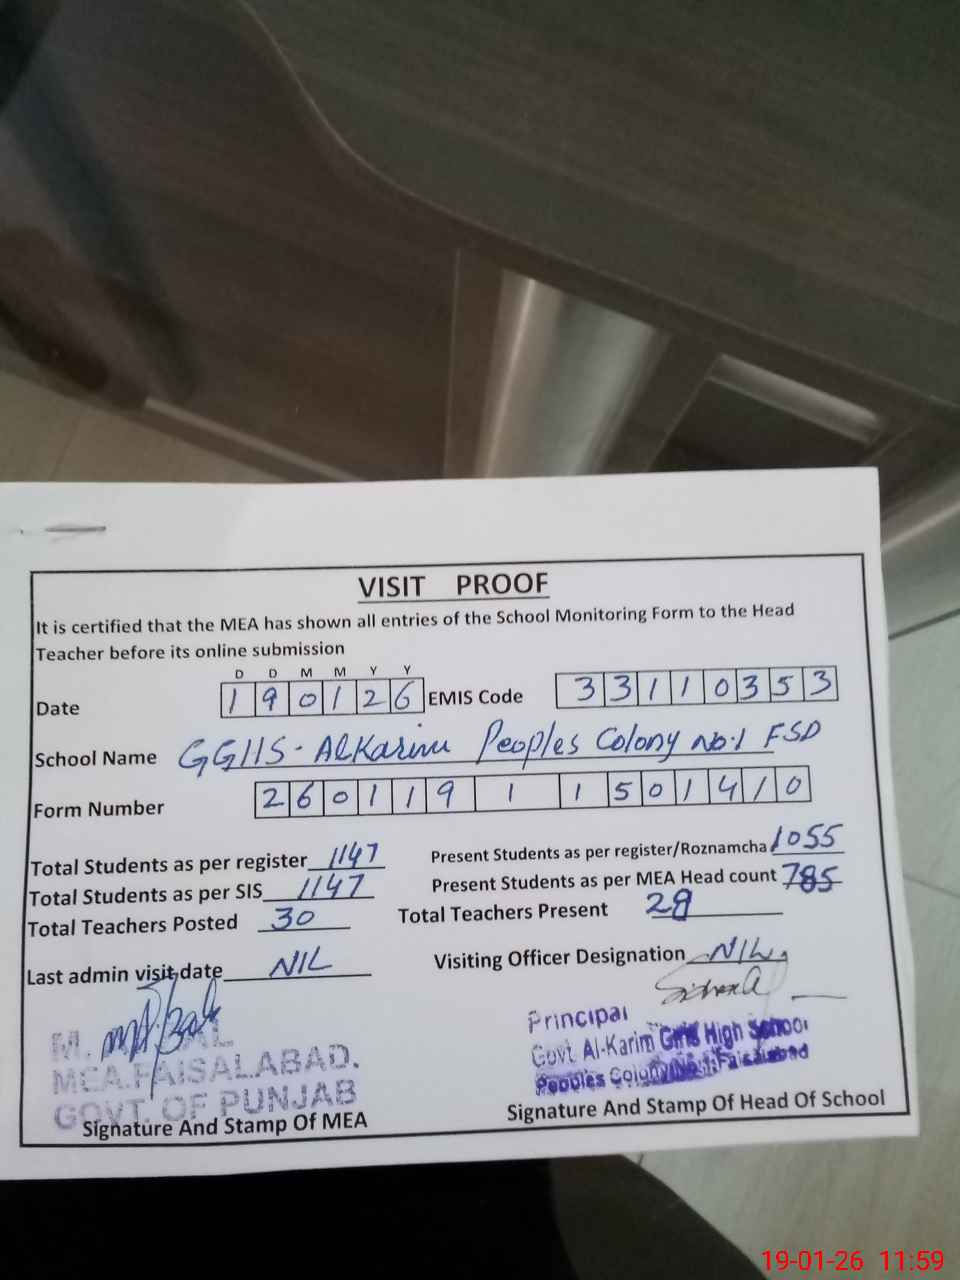 VISIT PROOF
It is certified that the MEA has shown all entries of the School Monitoring Form to the Head
Teacher before its online submission
D D M M Y Y
Date 1 9 0 1 2 6 EMIS Code 3 3 1 1 0 3 5 3
School Name GGHS - AlKarim Peoples Colony No.1 FSD
Form Number 2 6 0 1 1 9 1 1 5 0 1 4 1 0
Total Students as per register 1147 Present Students as per register/Roznamcha 1055
Total Students as per SIS 1147 Present Students as per MEA Head count 785
Total Teachers Posted 30 Total Teachers Present 28
Last admin visit date NIL Visiting Officer Designation NIL
Principal
Govt. Al-Karim Girls High School
Peoples Colony No.1 Faisalabad
M.
MEA.FAISALABAD.
GOVT. OF PUNJAB
Signature And Stamp Of MEA Signature And Stamp Of Head Of School
19-01-26 11:59